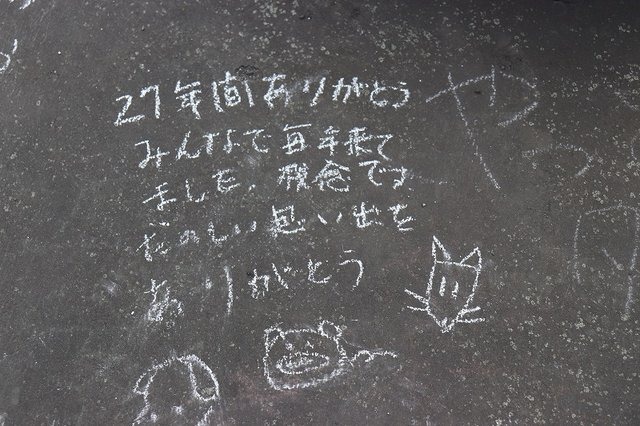 27年間ありがとう
みんなで毎年来て
ました。残念です
たのしい思い出を
ありがとう